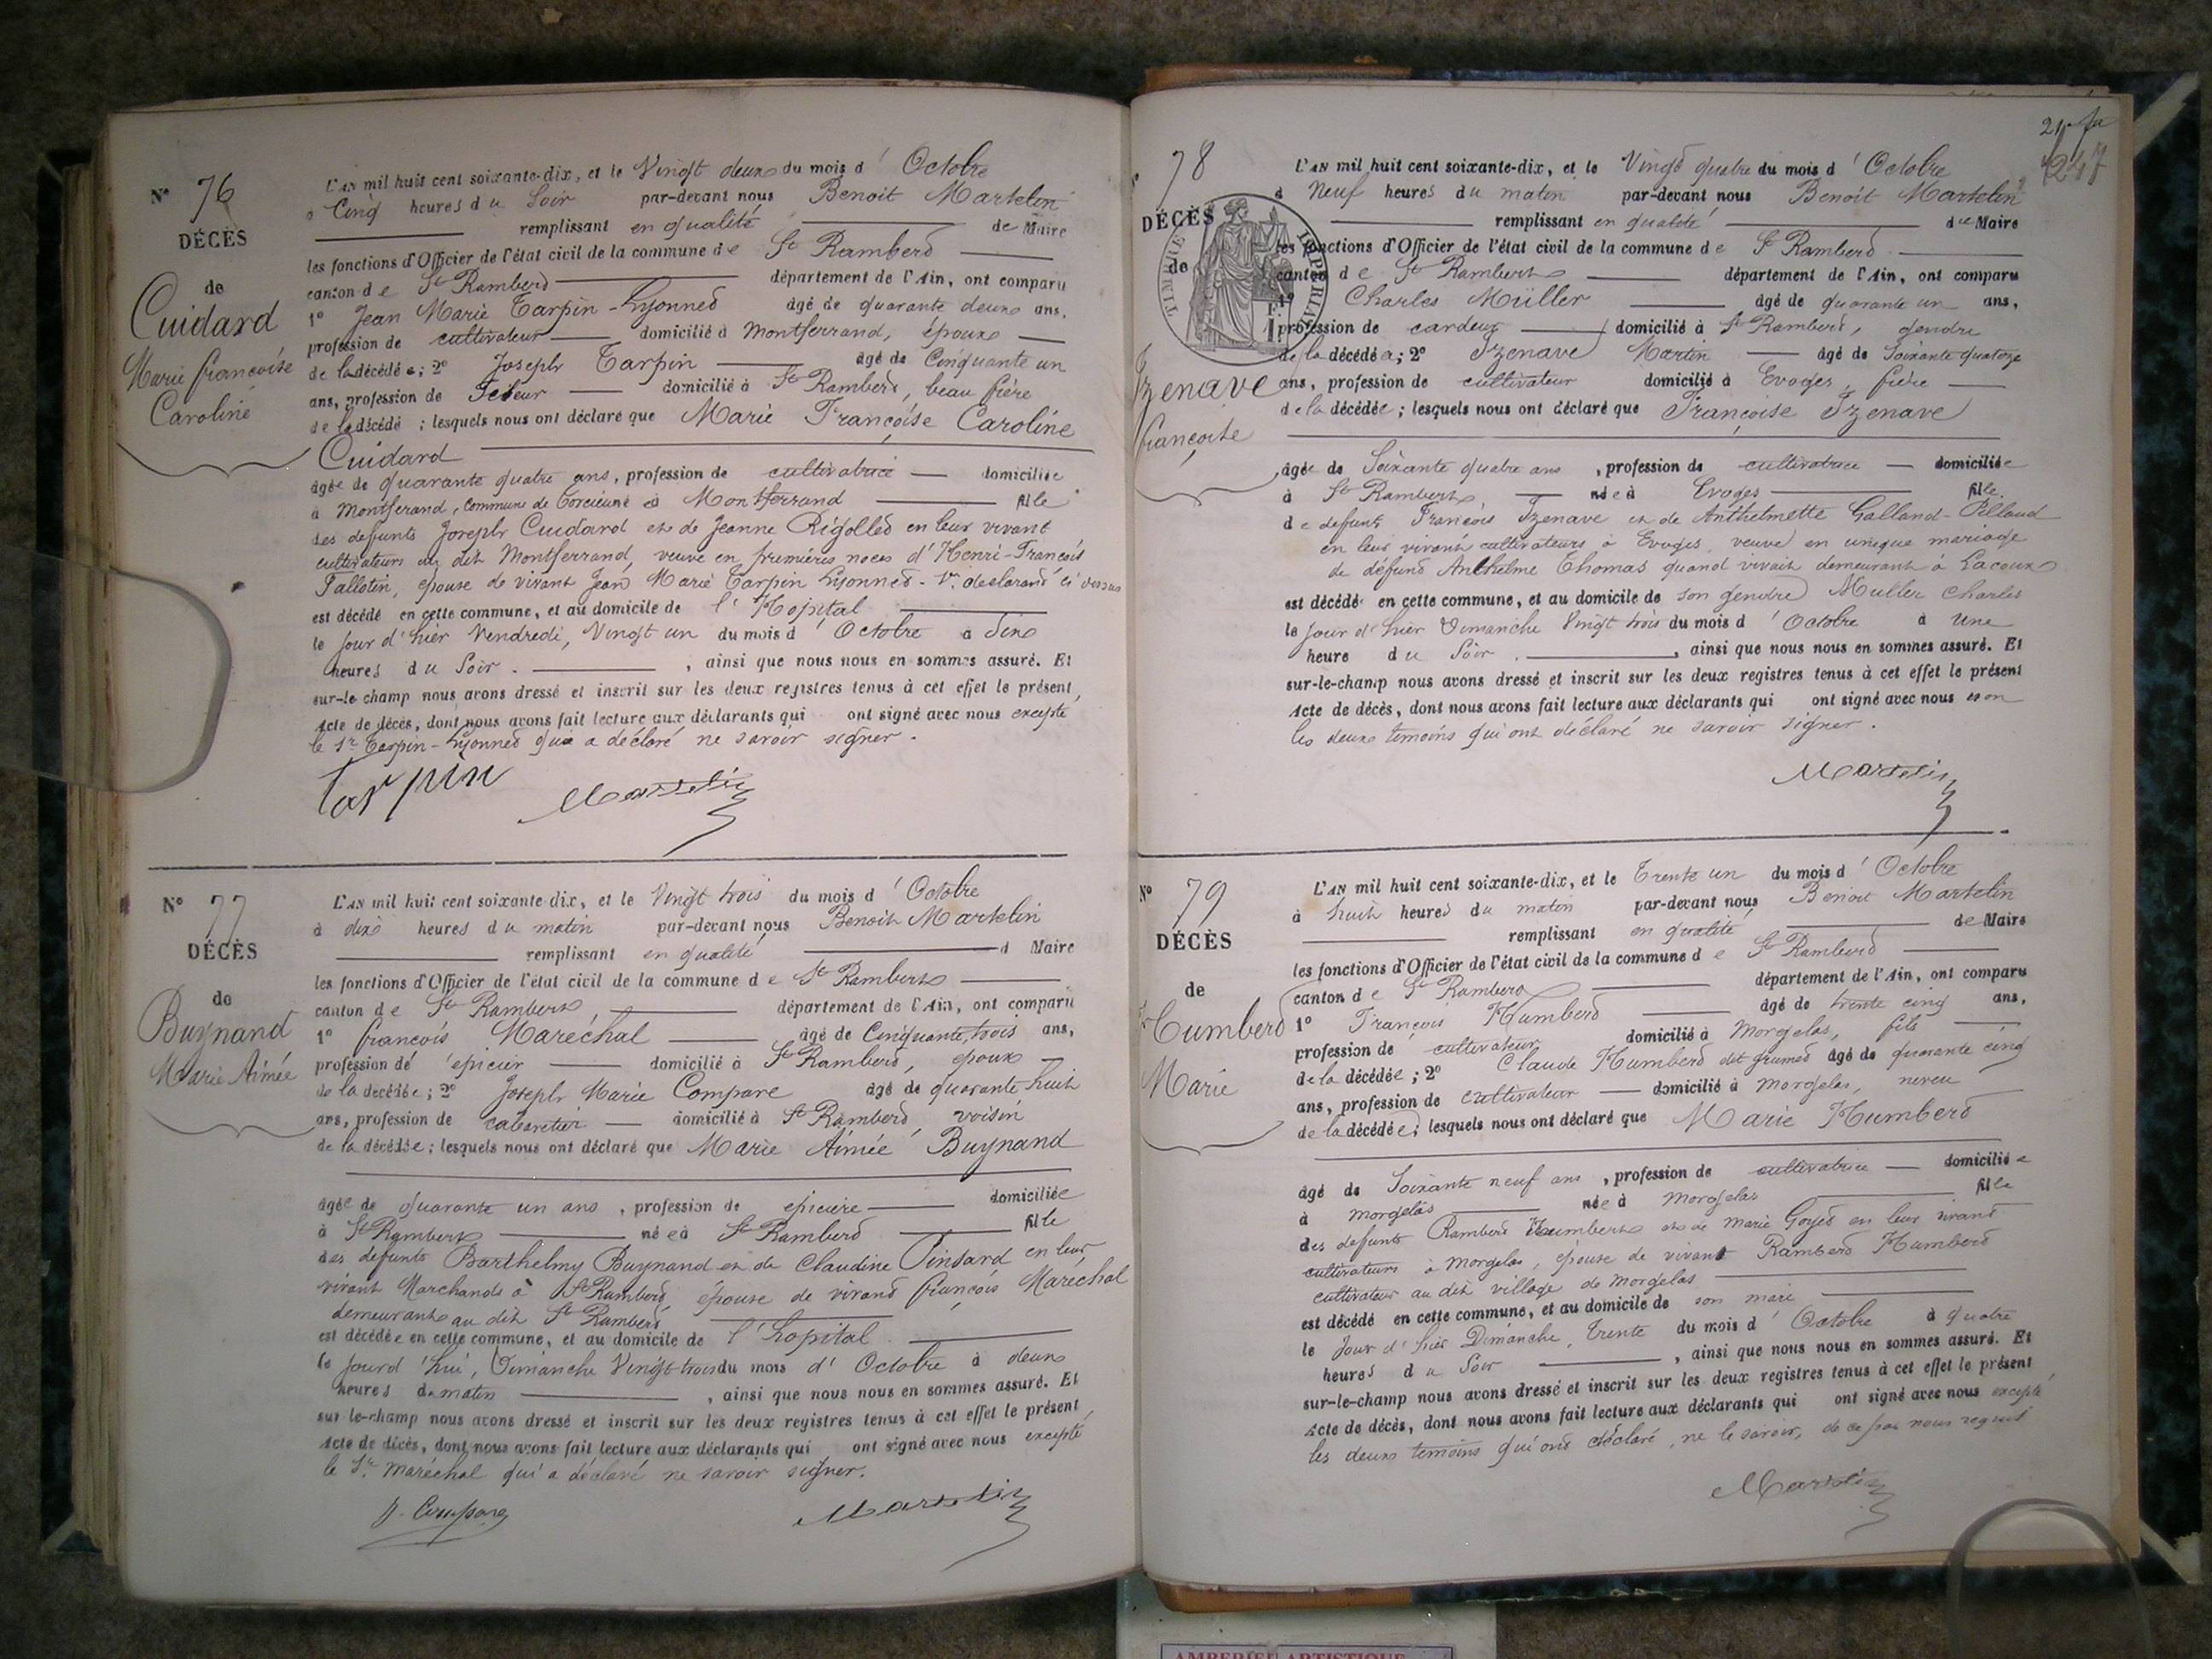 N° 76
DÉCÈS
de
Cuidard
Marie françoise
Caroline
L'AN mil huit cent soixante-dix, et le Vingt deux du mois d'Octobre
à Cinq heures du Soir par-devant nous Benoit Martelin
remplissant en qualité de Maire
les fonctions d'Officier de l'état civil de la commune de St Rambert
canton de St Rambert département de l'Ain, ont comparu
1° Jean Marie Tarpin-Lyonnet âgé de quarante deux ans,
profession de cultivateur domicilié à Montferrand, époux
de la décédée; 2° Joseph Tarpin âgé de Cinquante un
ans, profession de domicilié à St Rambert, beau frère
de la décédé; lesquels nous ont déclaré que Marie Françoise Caroline
Cuidard
âgée de quarante quatre ans, profession de cultivatrice domiciliée
à Montferand, commune de à Montferrand fille
des defunts Joseph Cuidard et de Jeanne Rigollet en leur vivant
cultivateurs au dit Montferrand, veuve en premières noces d'Henri-François
Pallotin, épouse de vivant Jean Marie Tarpin Lyonnet - 1er declarant ci dessus
est décédé en cette commune, et au domicile de l'Hopital
le jour d'hier Vendredi, Vingt un du mois d'Octobre à dix
heures du Soir. , ainsi que nous nous en sommes assuré. Et
sur-le-champ nous avons dressé et inscrit sur les deux registres tenus à cet effet le présent
Acte de décès, dont nous avons fait lecture aux déclarants qui ont signé avec nous excepté
le Sr Tarpin-Lyonnet qui a déclaré ne savoir signer.
tarpin Martelin
N° 77
DÉCÈS
de
Buynand
Marie Aimée
L'AN mil huit cent soixante-dix, et le Vingt trois du mois d'Octobre
à dix heures du matin par-devant nous Benoit Martelin
remplissant en qualité d Maire
les fonctions d'Officier de l'état civil de la commune de St Rambert
canton de St Rambert département de l'Ain, ont comparu
1° françois Maréchal âgé de Cinquante trois ans,
profession de épicier domicilié à St Rambert, époux
de la decédée; 2° Joseph Marie Compare âgé de quarante huit
ans, profession de cabaretier domicilié à St Rambert, voisin
de la décédée; lesquels nous ont déclaré que Marie Aimée Buynand
âgée de quarante un ans, profession de épicière domiciliée
à St Rambert née à St Rambert fille
des defunts Barthelmy Buynand et de Claudine Pinsard en leur
vivant Marchands à St Rambert épouse de vivant françois Maréchal
demeurant au dit St Rambert
est décédée en cette commune, et au domicile de l'hopital
le jourd'hui, Dimanche Vingt trois du mois d'Octobre à deux
heures du matin , ainsi que nous nous en sommes assuré. Et
sur-le-champ nous avons dressé et inscrit sur les deux registres tenus à cet effet le présent
Acte de décès, dont nous avons fait lecture aux déclarants qui ont signé avec nous excepté
le Sr. Maréchal qui a déclaré ne savoir signer.
Compare Martelin
1247
78
DÉCÈS
de
Izenave
françoise
TIMBRE IMPERIAL
L'AN mil huit cent soixante-dix, et le Vingt quatre du mois d'Octobre
à Neuf heures du matin par-devant nous Benoit Martelin
remplissant en qualité de Maire
les fonctions d'Officier de l'état civil de la commune de St Rambert
canton de St Rambert département de l'Ain, ont comparu
1° Charles Müller âgé de quarante un ans,
profession de cardeur domicilié à St Rambert, gendre
de la décédée; 2° Izenave Martin âgé de Soixante quatorze
ans, profession de cultivateur domicilié à Evoges, frère
de la décédée; lesquels nous ont déclaré que Françoise Izenave
âgée de Soixante quatre ans, profession de cultivatrice domiciliée
à St Rambert née à Evoges fille
de defunts François Izenave et de Anthelmette Galland-Pilloud
en leur vivant cultivateurs à Evoges, veuve en unique mariage
de défunt Anthelme Thomas quand vivait demeurant à Lacoux
est décédé en cette commune, et au domicile de son gendre Muller Charles
le jour d'hier Dimanche Vingt trois du mois d'Octobre à une
heure du Soir. , ainsi que nous nous en sommes assuré. Et
sur-le-champ nous avons dressé et inscrit sur les deux registres tenus à cet effet le présent
Acte de décès, dont nous avons fait lecture aux déclarants qui ont signé avec nous non
les deux temoins qui ont déclaré ne savoir signer.
Martelin
N° 79
DÉCÈS
de
Humbert
Marie
L'AN mil huit cent soixante-dix, et le Trente un du mois d'Octobre
à huit heures du matin par-devant nous Benoit Martelin
remplissant en qualité de Maire
les fonctions d'Officier de l'état civil de la commune de St Rambert
canton de St Rambert département de l'Ain, ont comparu
1° François Humbert âgé de trente cinq ans,
profession de cultivateur domicilié à Morgelas, fils
de la décédée; 2° Claude Humbert dit grumet âgé de quarante cinq
ans, profession de cultivateur domicilié à Morgelas, neveu
de la décédée; lesquels nous ont déclaré que Marie Humbert
âgé de Soixante neuf ans, profession de cultivatrice domiciliée
à Morgelas née à Morgelas fille
des defunts Rambert Humbert et de Marie Goyet en leur vivant
cultivateurs à Morgelas, épouse de vivant Rambert Humbert
cultivateur au dit village de Morgelas
est décédé en cette commune, et au domicile de son mari
le jour d'hier Dimanche, Trente du mois d'Octobre à quatre
heures du Soir , ainsi que nous nous en sommes assuré. Et
sur-le-champ nous avons dressé et inscrit sur les deux registres tenus à cet effet le présent
Acte de décès, dont nous avons fait lecture aux déclarants qui ont signé avec nous excepté
les deux temoins qui ont déclaré, ne le savoir, de ce par nous requis
Martelin
AMBERIEU ARTISTIQUE